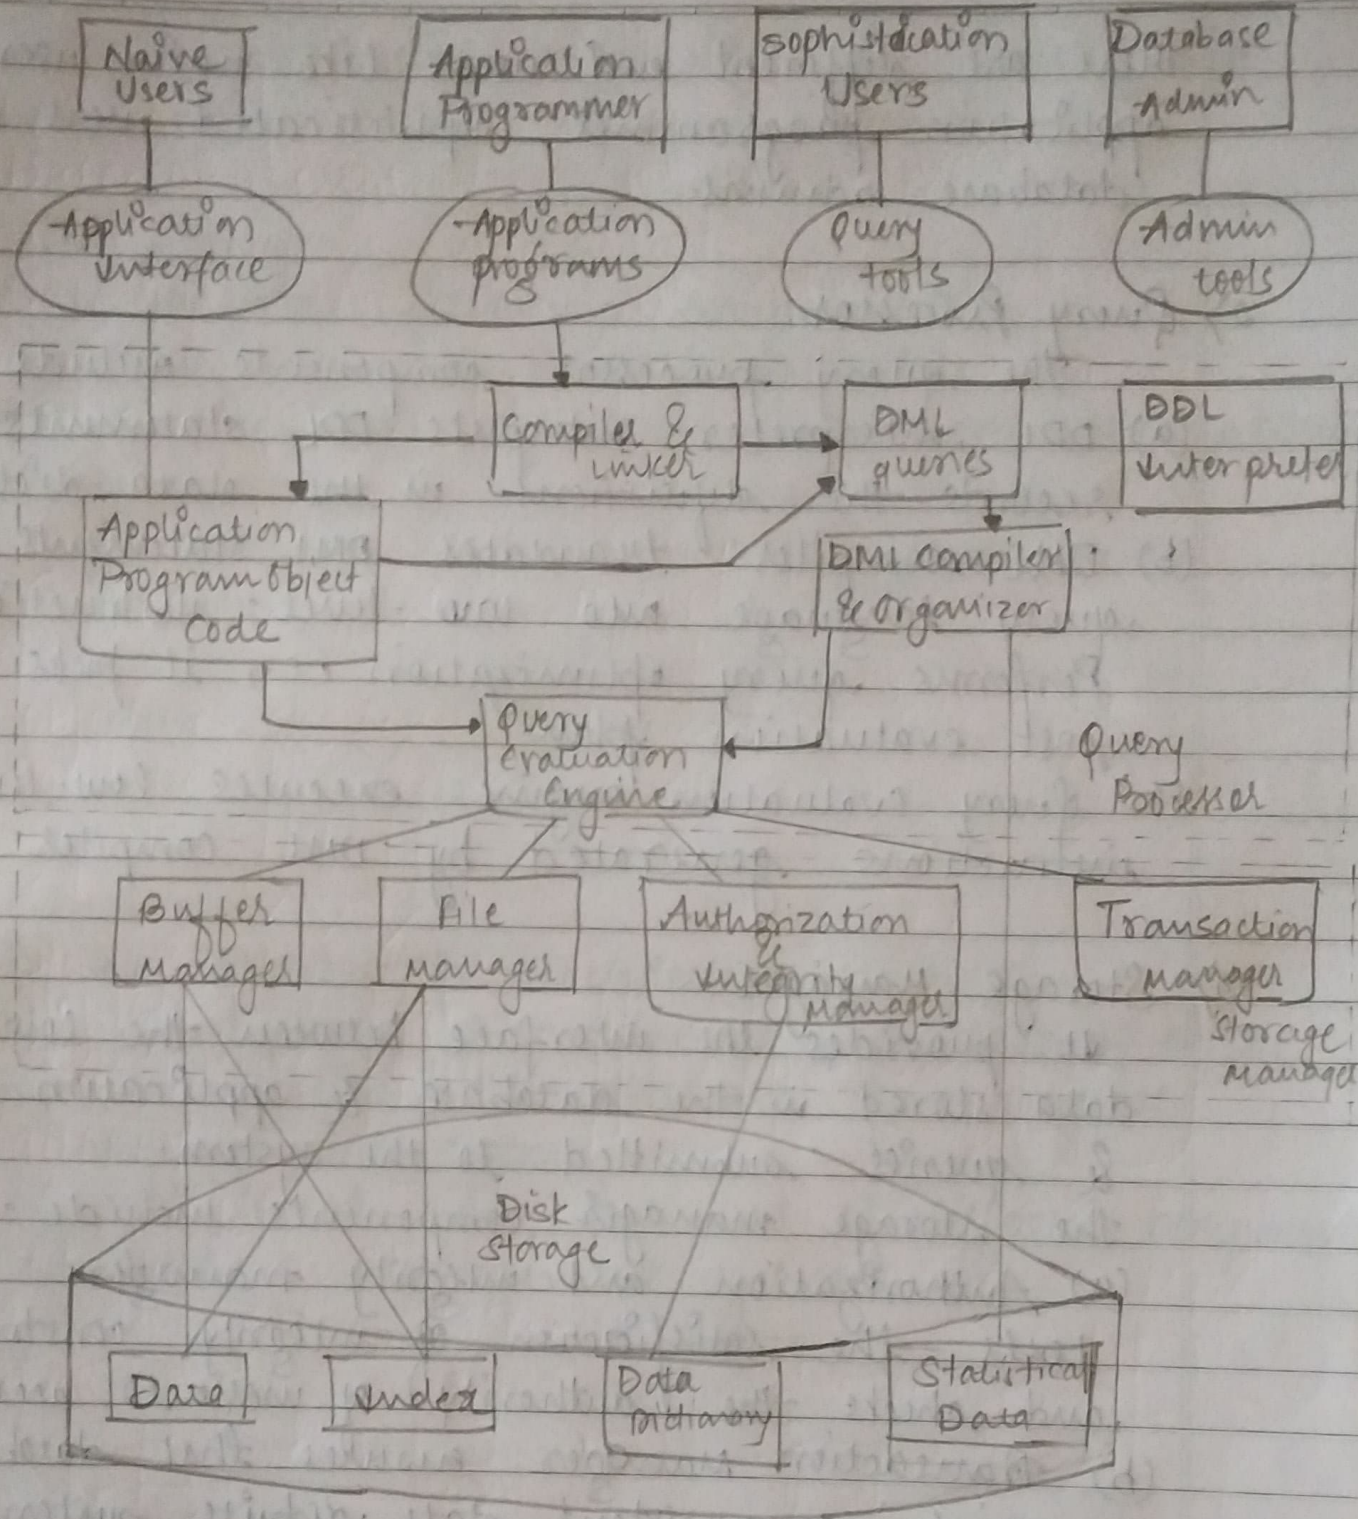 Naive
Users
Application
Programmer
Sophistication
Users
Database
Admin
Application
Interface
Application
programs
Query
tools
Admin
tools
Compiler &
Linker
DML
queries
DDL
Interpreter
Application
Program object
Code
DML compiler
& organizer
Query
Evaluation
Engine
Query
Processor
Buffer
Manager
File
manager
Authorization
&
Integrity
Manager
Transaction
manager
Storage
Manager
Disk
storage
Data
Index
Data
Dictionary
Statistical
Data